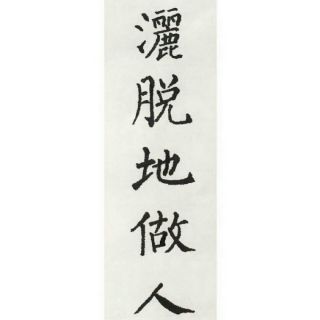 灑脫地做人